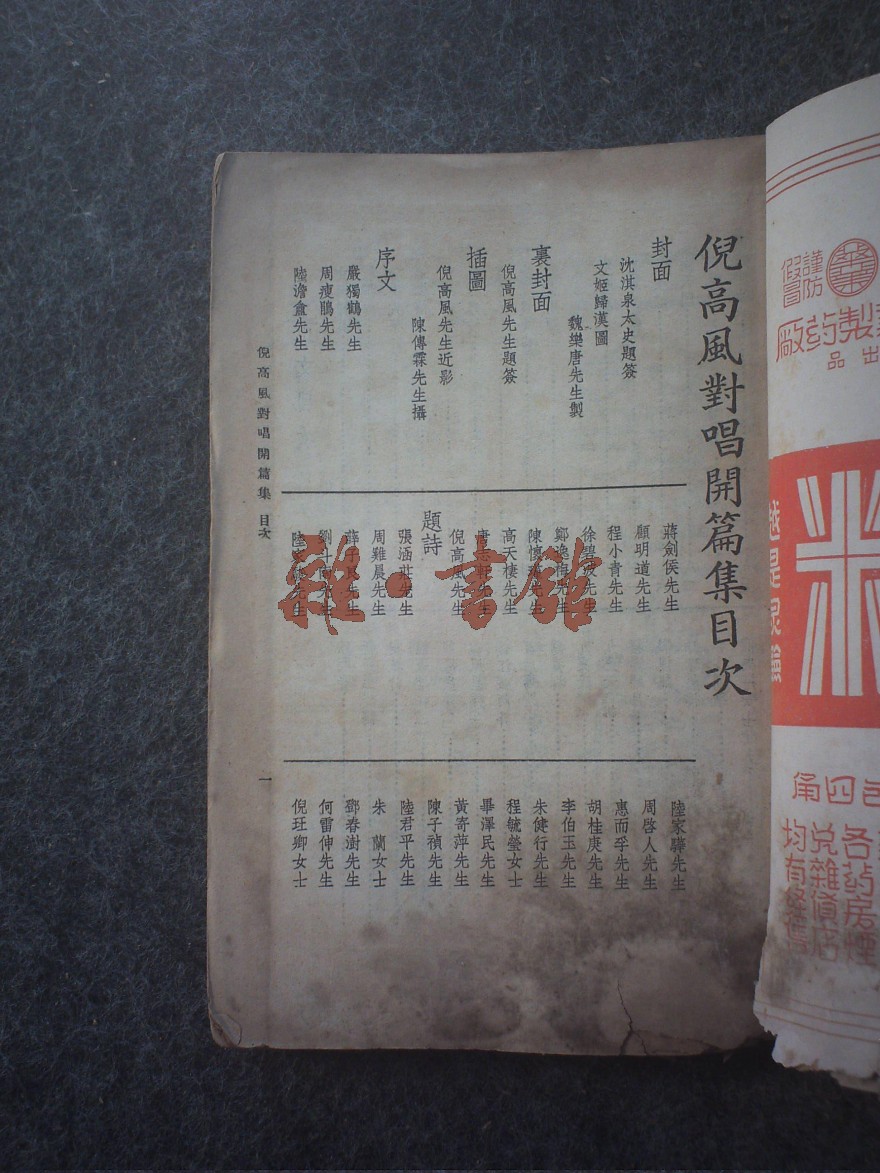 倪高風對唱開篇集目次
封面
沈淇泉太史題簽
文姬歸漢圖
魏樂唐先生製
裏封面
倪高風先生題簽
插圖
倪高風先生近影
陳傳霖先生攝
序文
嚴獨鶴先生
周瘦鵑先生
陸澹盦先生
蔣劍侯先生
顧明道先生
程小青先生
徐碧波先生
鄭逸梅先生
陳懷
先生
高天棲先生
唐
軒先生
倪高風先生
題詩
張涵莊先生
周雞晨先生
薛子
先生
劉斗
先生
陸
先生
陸家驊先生
周啓人先生
惠而孚先生
胡桂庚先生
李伯玉先生
朱健行先生
程毓瑩女士
畢澤民先生
黃寄萍先生
陳子禎先生
陸君平先生
朱蘭女士
鄧春澍先生
何雷仲先生
倪玨卿女士
倪高風對唱開篇集 目次
一
雜·書館
謹防
假冒
製药厰
出品
米
越是
各药房煙
兑雜貨店
均有